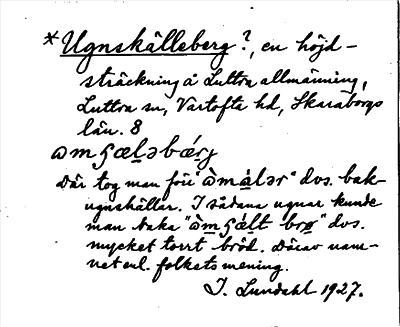 *Ugnskälleberg?, en höjd-
sträckning å Luttra allmänning,
Luttra sn, Vartofta hd, Skaraborgs
län. 8
Där tog man förr "                " dvs. bak-
ugnshällar. I sådana ugnar kunde
man baka "                " dvs.
mycket torrt bröd. Därav nam-
net enl. folkets mening.
I. Lundahl 1927.